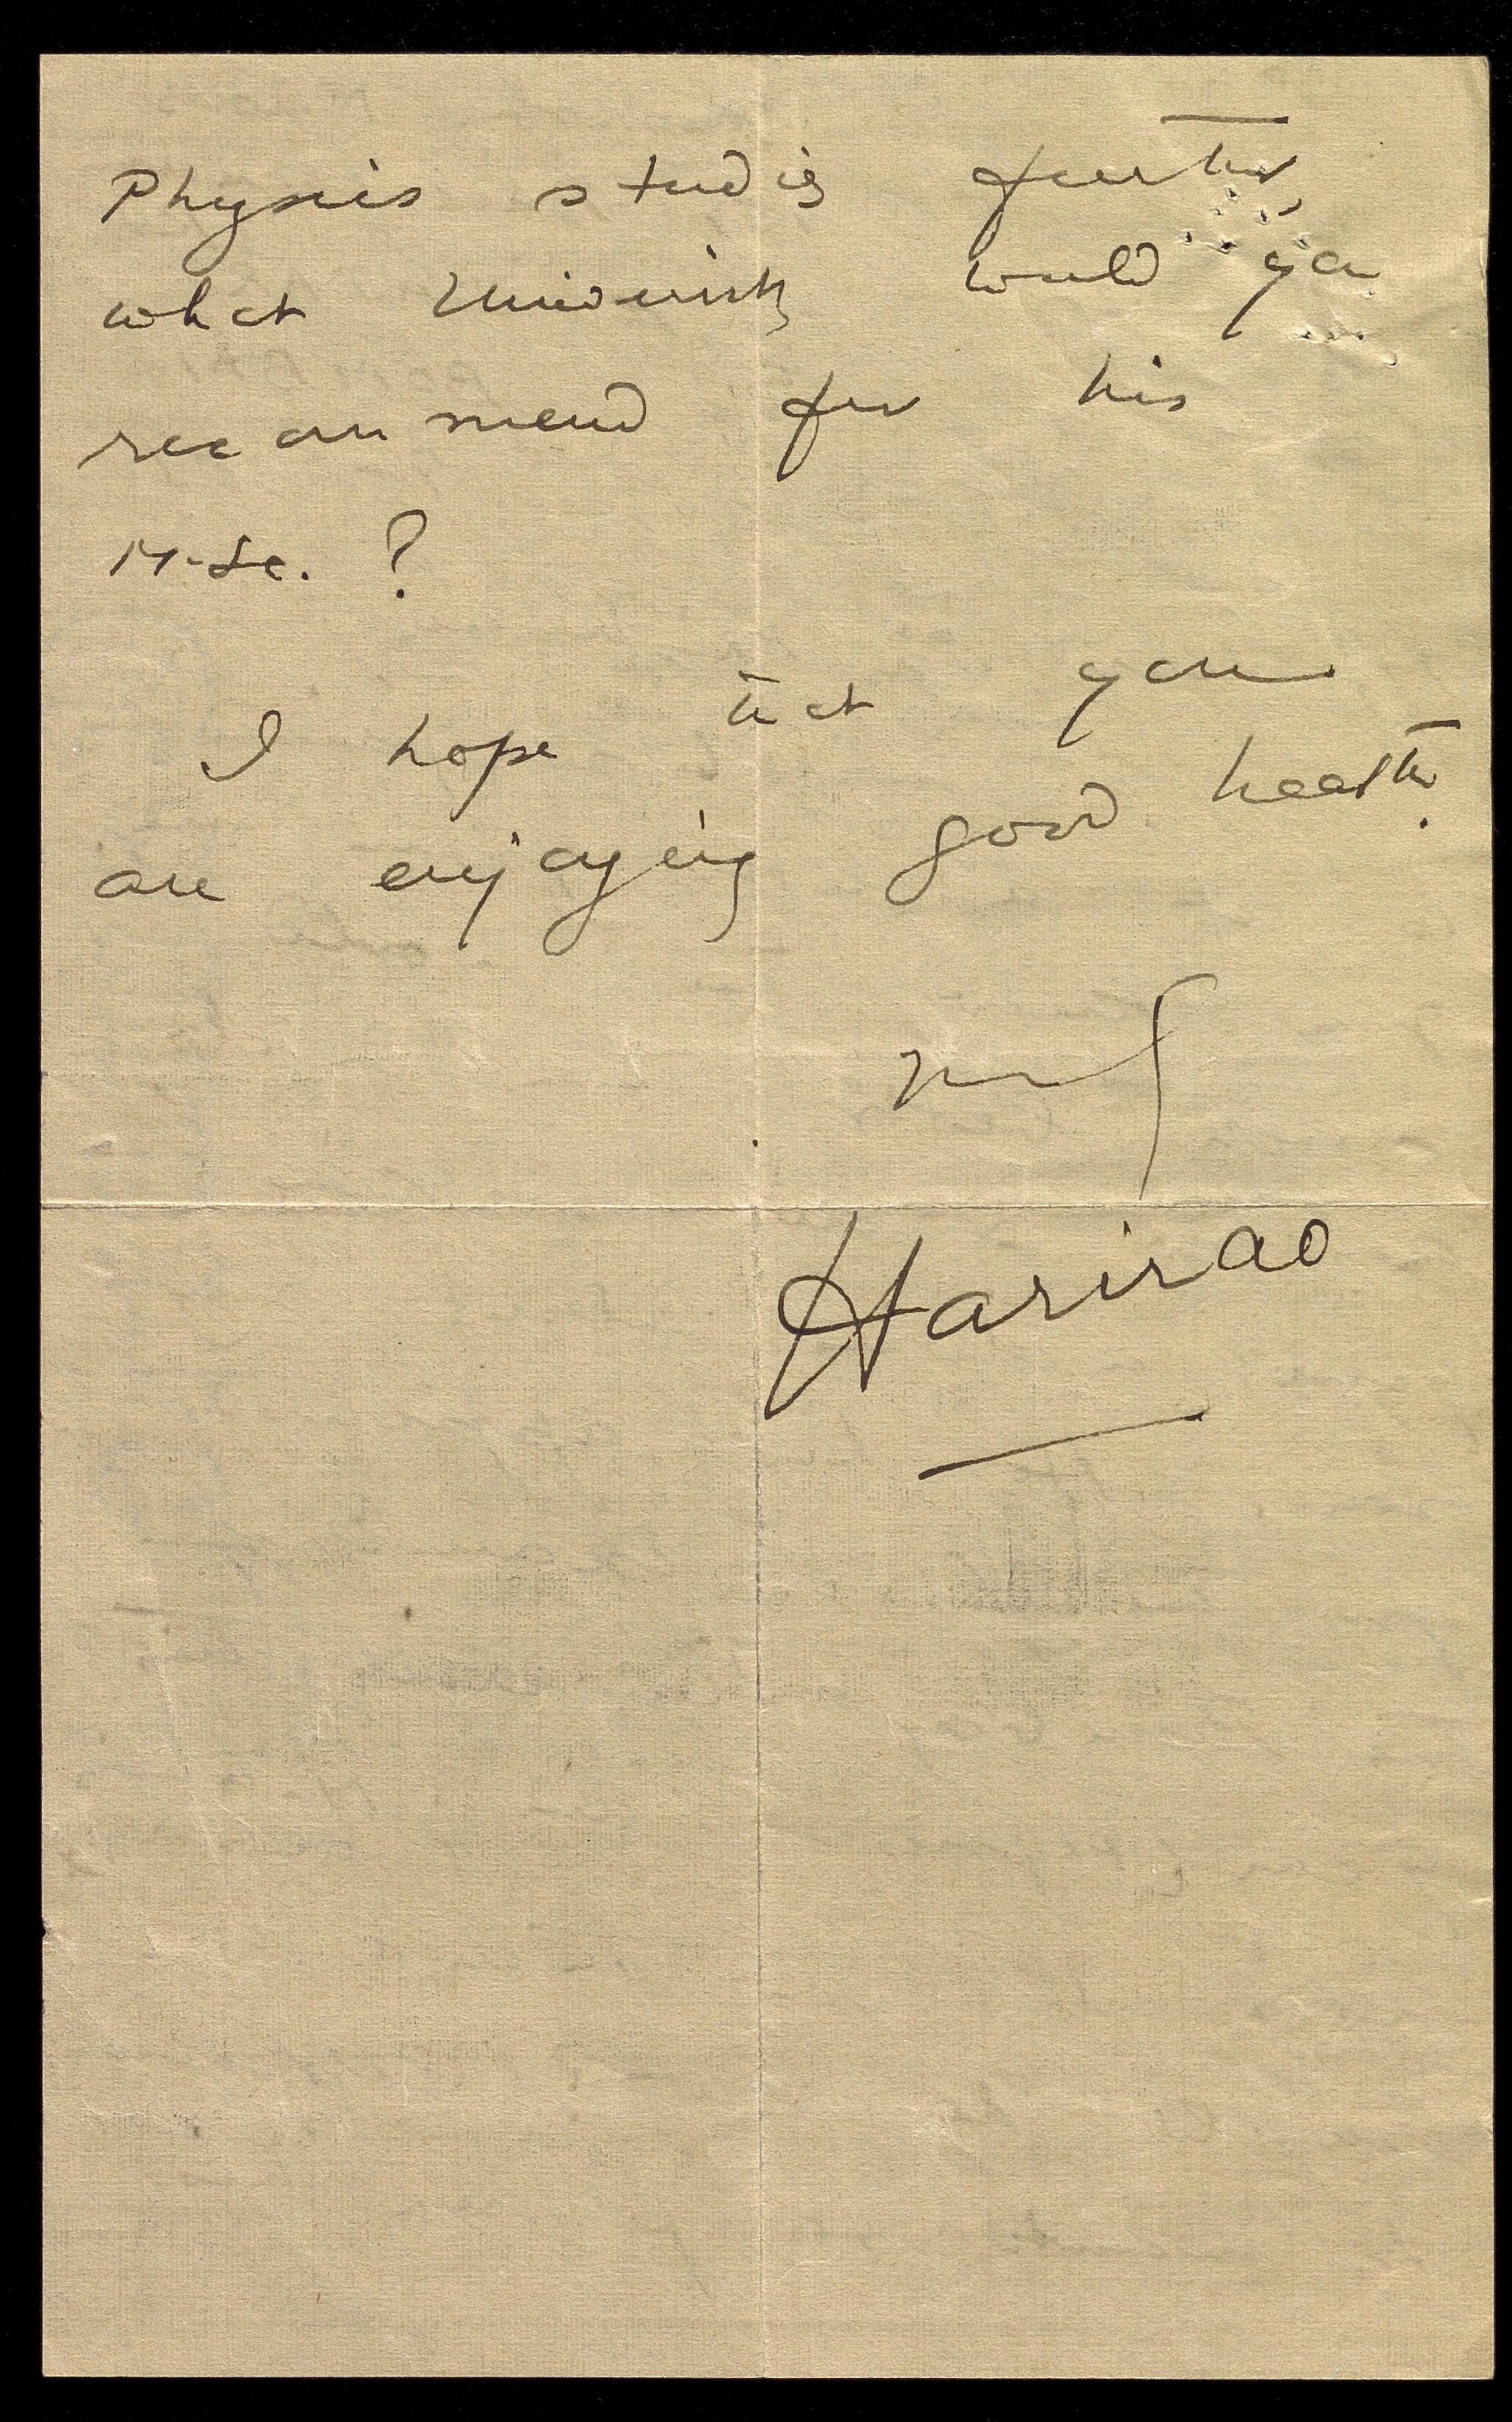 Physics studies further,
what University would you
recommend for his
M.Sc. ?
I hope that you
are enjoying good health.
Harirao